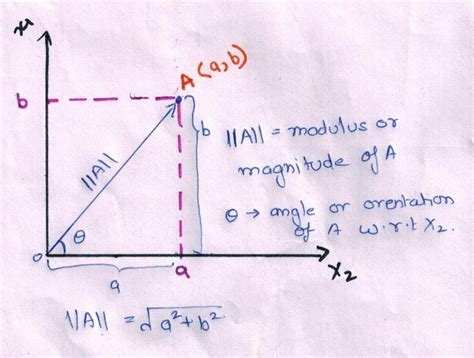 x1
A (a,b)
b
b
||A||
||A|| = modulus or
magnitude of A
θ → angle or orentation
of A w.r.t X2.
θ
0
a
X2
a
||A|| = √a²+b²